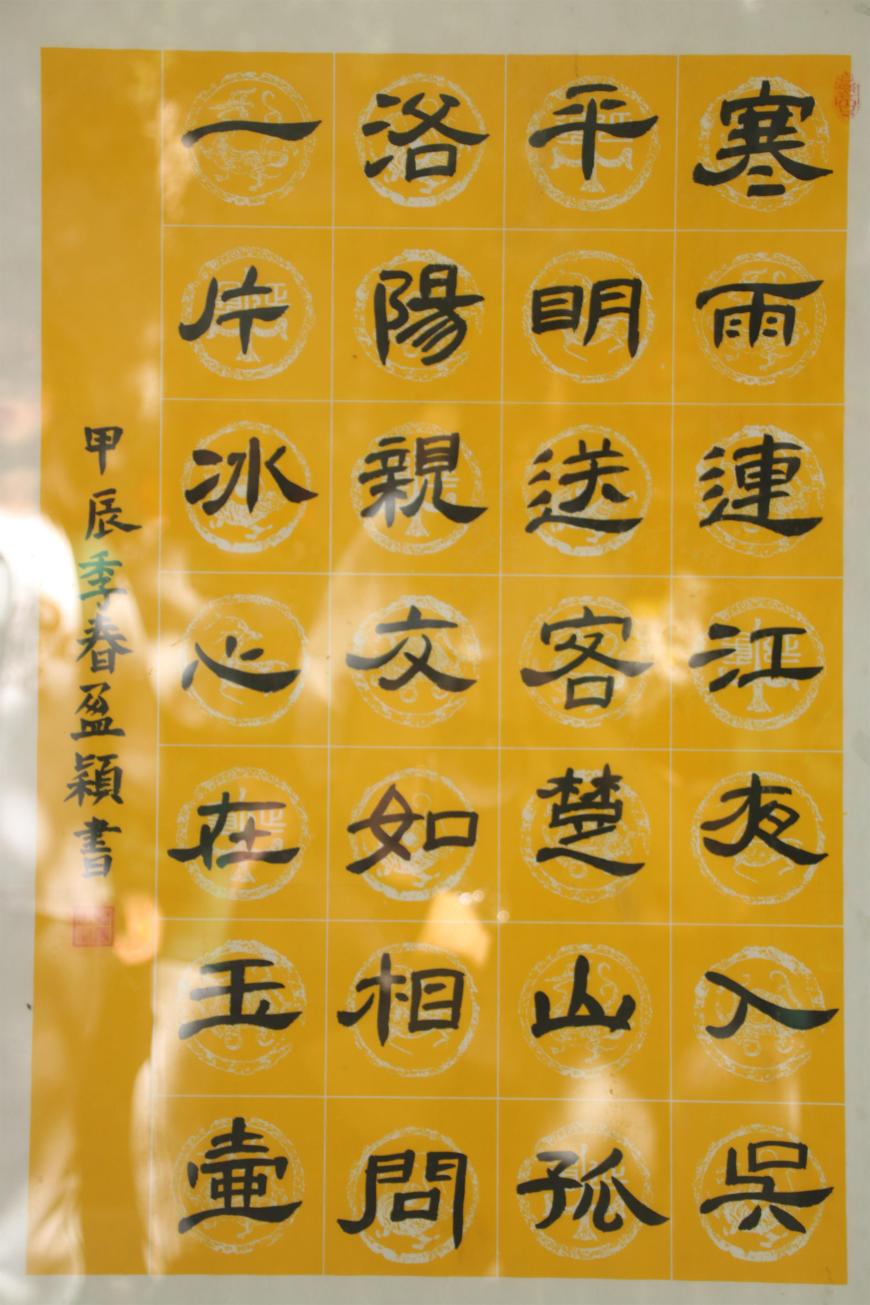 寒雨連江夜入吳
平眀送客楚山孤
洛陽親友如相問
一片冰心在玉壺
甲辰季春盈穎書